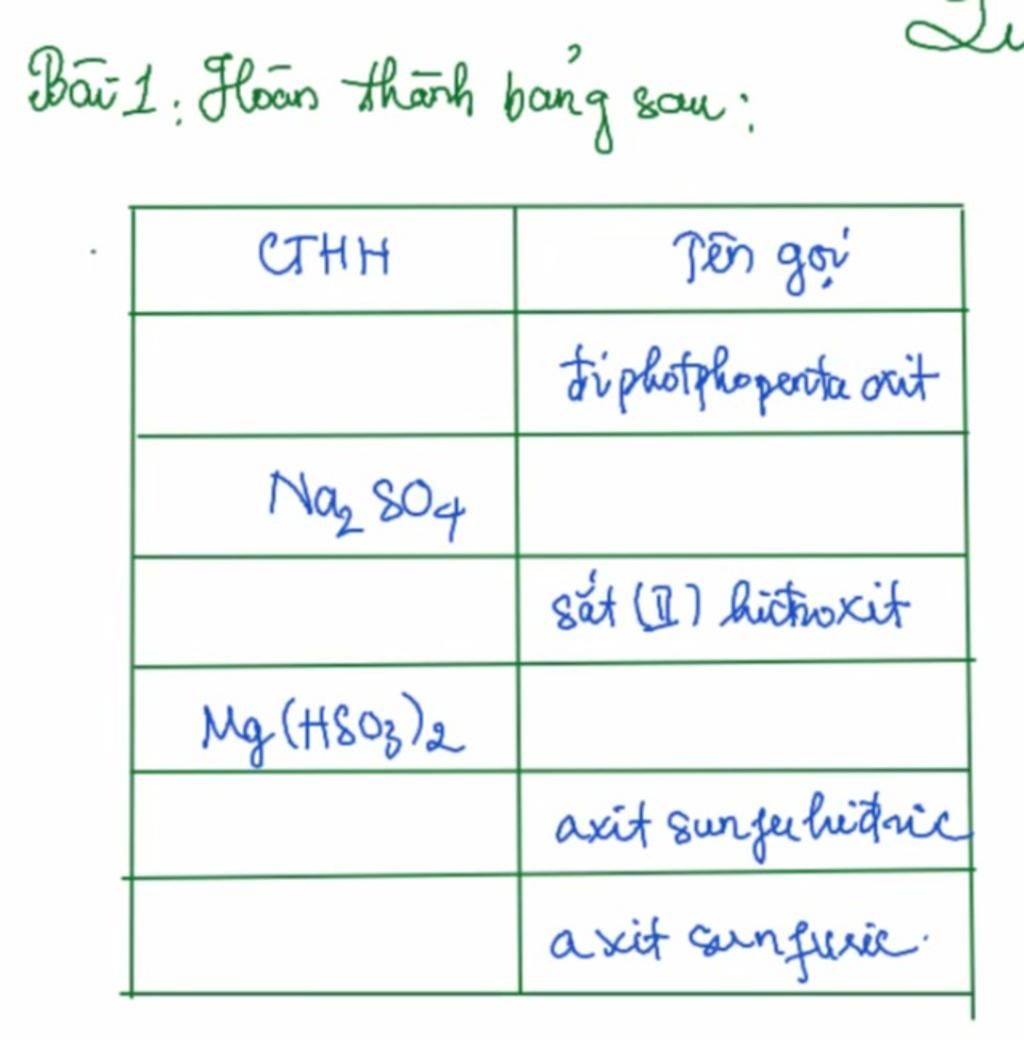 Bài 1: Hoàn thành bảng sau:
CTHH Tên gọi
điphotphopenta oxit
Na₂SO₄
sắt (II) hiđroxit
Mg(HSO₃)₂
axit sunfuhiđric
axit sunfuric.